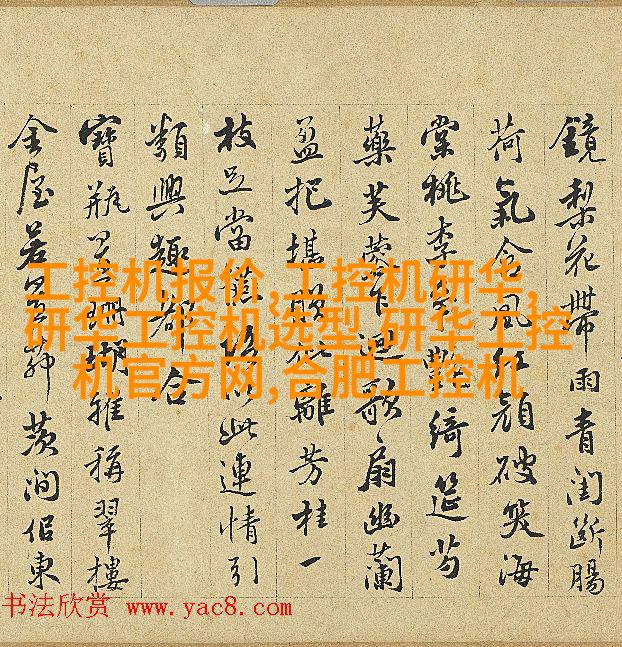 鏡梨花帶雨青閨斷腸
荷氣含風紅顔破笑海
棠桃李艷綺筵芍
藥芙蓉迎歌扇幽蘭
盈把堪離芳桂一
枝足當以此連情引
類興趣都合
寶瓶珊瑚雅稱翠樓
金屋若茨澗侣東
工控机报价,工控机研华,
研华工控机选型,研华工控
机官方网,合肥工控机
书法欣赏 www.yac8.com